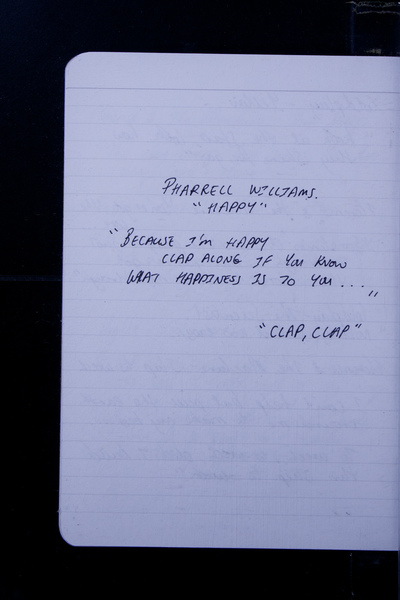 PHARRELL WILLIAMS.
"HAPPY"
"BECAUSE I'M HAPPY
CLAP ALONG IF YOU KNOW
WHAT HAPPINESS IS TO YOU ..."
"CLAP, CLAP"